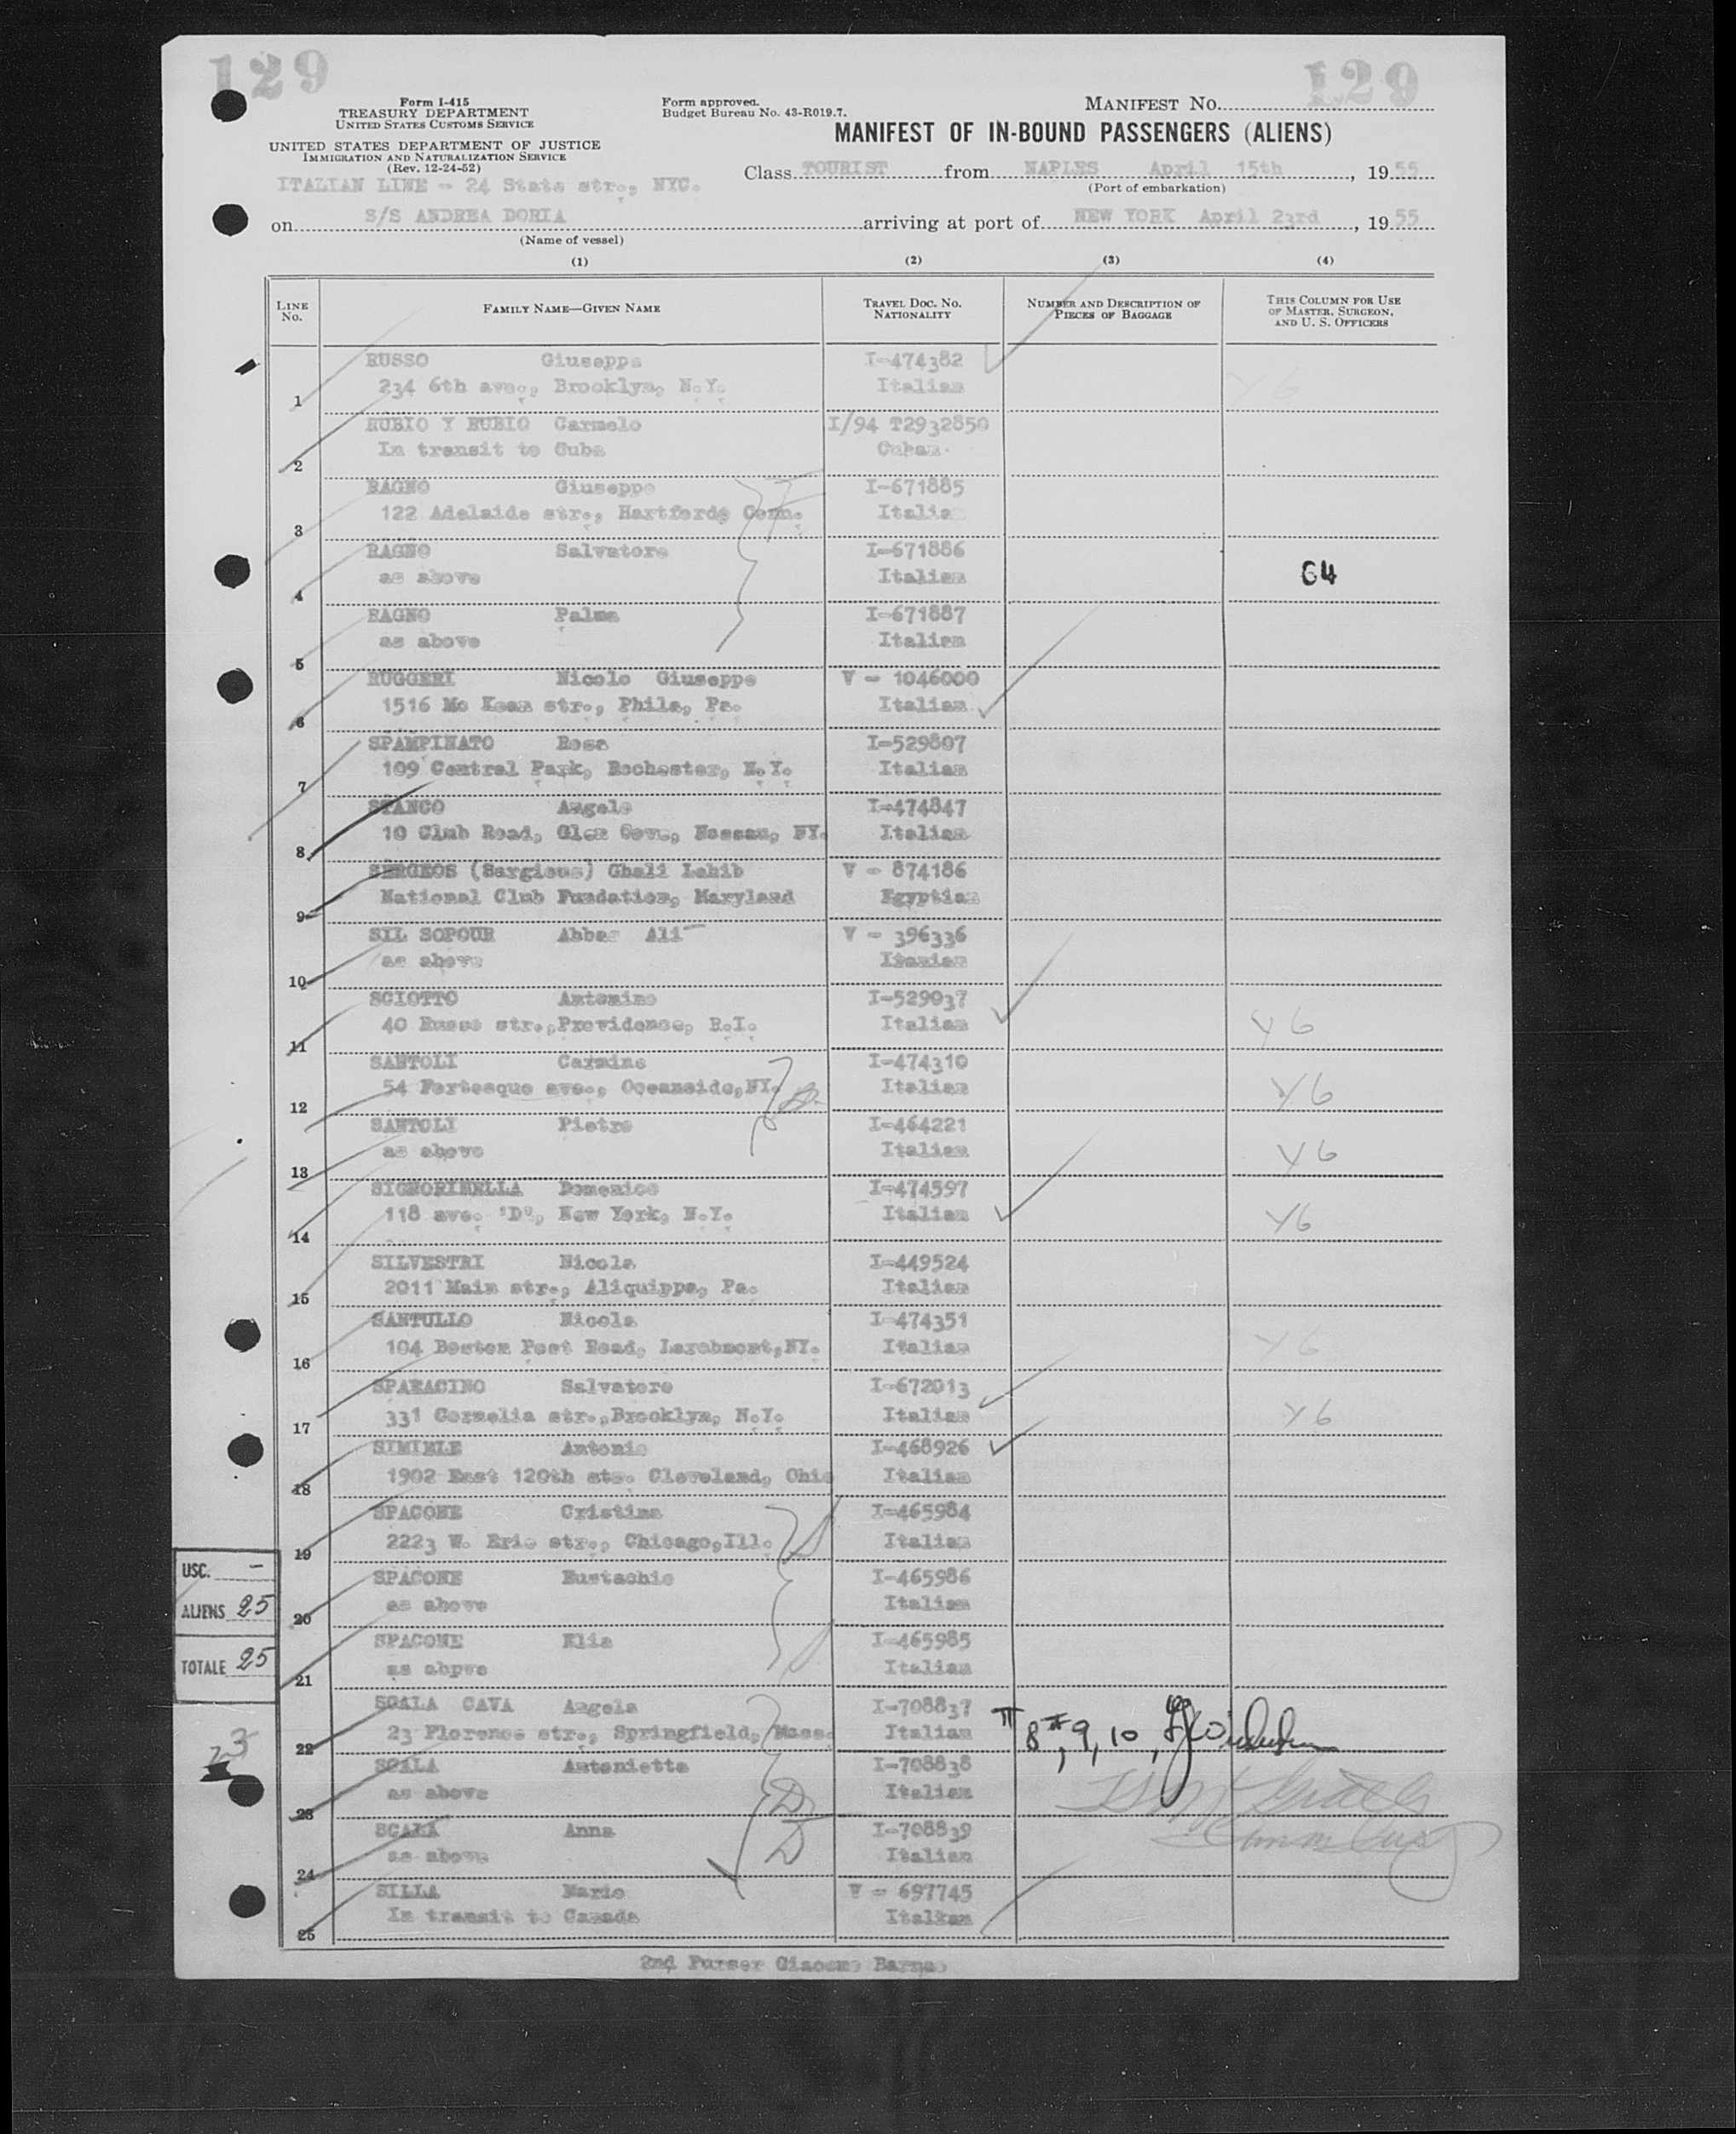 129
129
Form I-415
TREASURY DEPARTMENT
UNITED STATES CUSTOMS SERVICE
UNITED STATES DEPARTMENT OF JUSTICE
IMMIGRATION AND NATURALIZATION SERVICE
(Rev. 12-24-52)
Form approved.
Budget Bureau No. 43-R019.7.
MANIFEST No.
MANIFEST OF IN-BOUND PASSENGERS (ALIENS)
ITALIAN LINE - 24 State str., NYC.
Class TOURIST from NAPLES April 15th, 1955
(Port of embarkation)
on S/S ANDREA DORIA arriving at port of NEW YORK April 23rd, 1955
(Name of vessel)
(1) (2) (3) (4)
LINE No. FAMILY NAME—GIVEN NAME TRAVEL DOC. NO. NATIONALITY NUMBER AND DESCRIPTION OF PIECES OF BAGGAGE THIS COLUMN FOR USE OF MASTER, SURGEON, AND U. S. OFFICERS
RUSSO Giuseppe I-474382
1 234 6th ave., Brooklyn, N.Y. Italian Y6
RUBIO Y RUBIO Carmelo I/94 T2932850
2 In transit to Cuba Cuban
RAGNO Giuseppe I-671885
3 122 Adelaide str., Hartford, Conn. Italia
RAGNO Salvatore I-671886
4 as above Italian 64
RAGNO Palma I-671887
5 as above Italian
RUGGERI Nicolo Giuseppe V - 1046000
6 1516 Mc Kean str., Phila, Pa. Italian
SPAMPINATO Rosa I-529807
7 109 Central Park, Rochester, N.Y. Italian
STANCO Angelo I-474847
8 10 Club Road, Glen Cove, Nassau, NY. Italian
SERGEOS (Sargious) Ghali Lahib V - 874186
9 National Club Fundation, Maryland Egyptian
SIL SOPOUR Abbas Ali V - 396336
10 as above Iranian
SCIOTTO Antonino I-529037
11 40 Russo str.,Providence, R.I. Italian Y6
SANTOLI Carmine I-474310
12 54 Fortesque ave., Oceanside,NY. Italian Y6
SANTOLI Pietro I-464221
13 as above Italian Y6
SIGNORINELLA Domenico I-474597
14 118 ave. "D", New York, N.Y. Italian Y6
SILVESTRI Nicola I-449524
15 2011 Main str., Aliquippa, Pa. Italian
SANTULLO Nicola I-474351
16 104 Boston Post Road, Larchmont,NY. Italian Y6
SPARACINO Salvatore I-672013
17 331 Cornelia str.,Brooklyn, N.Y. Italian Y6
SIMIELE Antonio I-468926
18 1902 East 120th str. Cleveland, Ohio Italian
SPACONE Cristina I-465984
19 2223 W. Erie str., Chicago,Ill. Italian
SPACONE Eustachio I-465986
20 as above Italian
SPACONE Elia I-465985
21 as abpve Italian
SCALA CAVA Angela I-708837
22 23 Florence str., Springfield, Mass. Italian 8, 9, 10,
SCALA Antonietta I-708838
23 as above Italian
SCALA Anna I-708839
24 as above Italian
SILLA Mario V - 697745
25 In transit to Canada Italian
USC. —
ALIENS 25
TOTALE 25
23
2nd Purser Giacomo